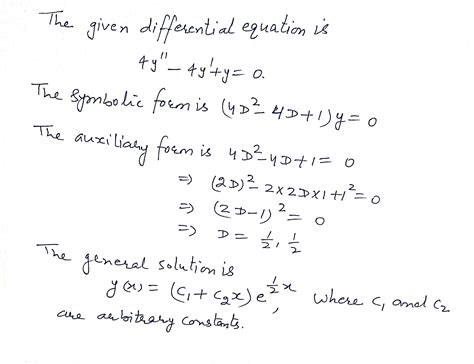 The given differential equation is
4y'' - 4y' + y = 0.
The Symbolic form is (4D² - 4D + 1) y = 0
The auxiliary form is 4D² - 4D + 1 = 0
⇒ (2D)² - 2×2D×1 + 1² = 0
⇒ (2D-1)² = 0
⇒ D = 1/2, 1/2
The general solution is
y(x) = (C₁ + C₂x) e^{1/2 x}, where C₁ and C₂
are arbitrary constants.